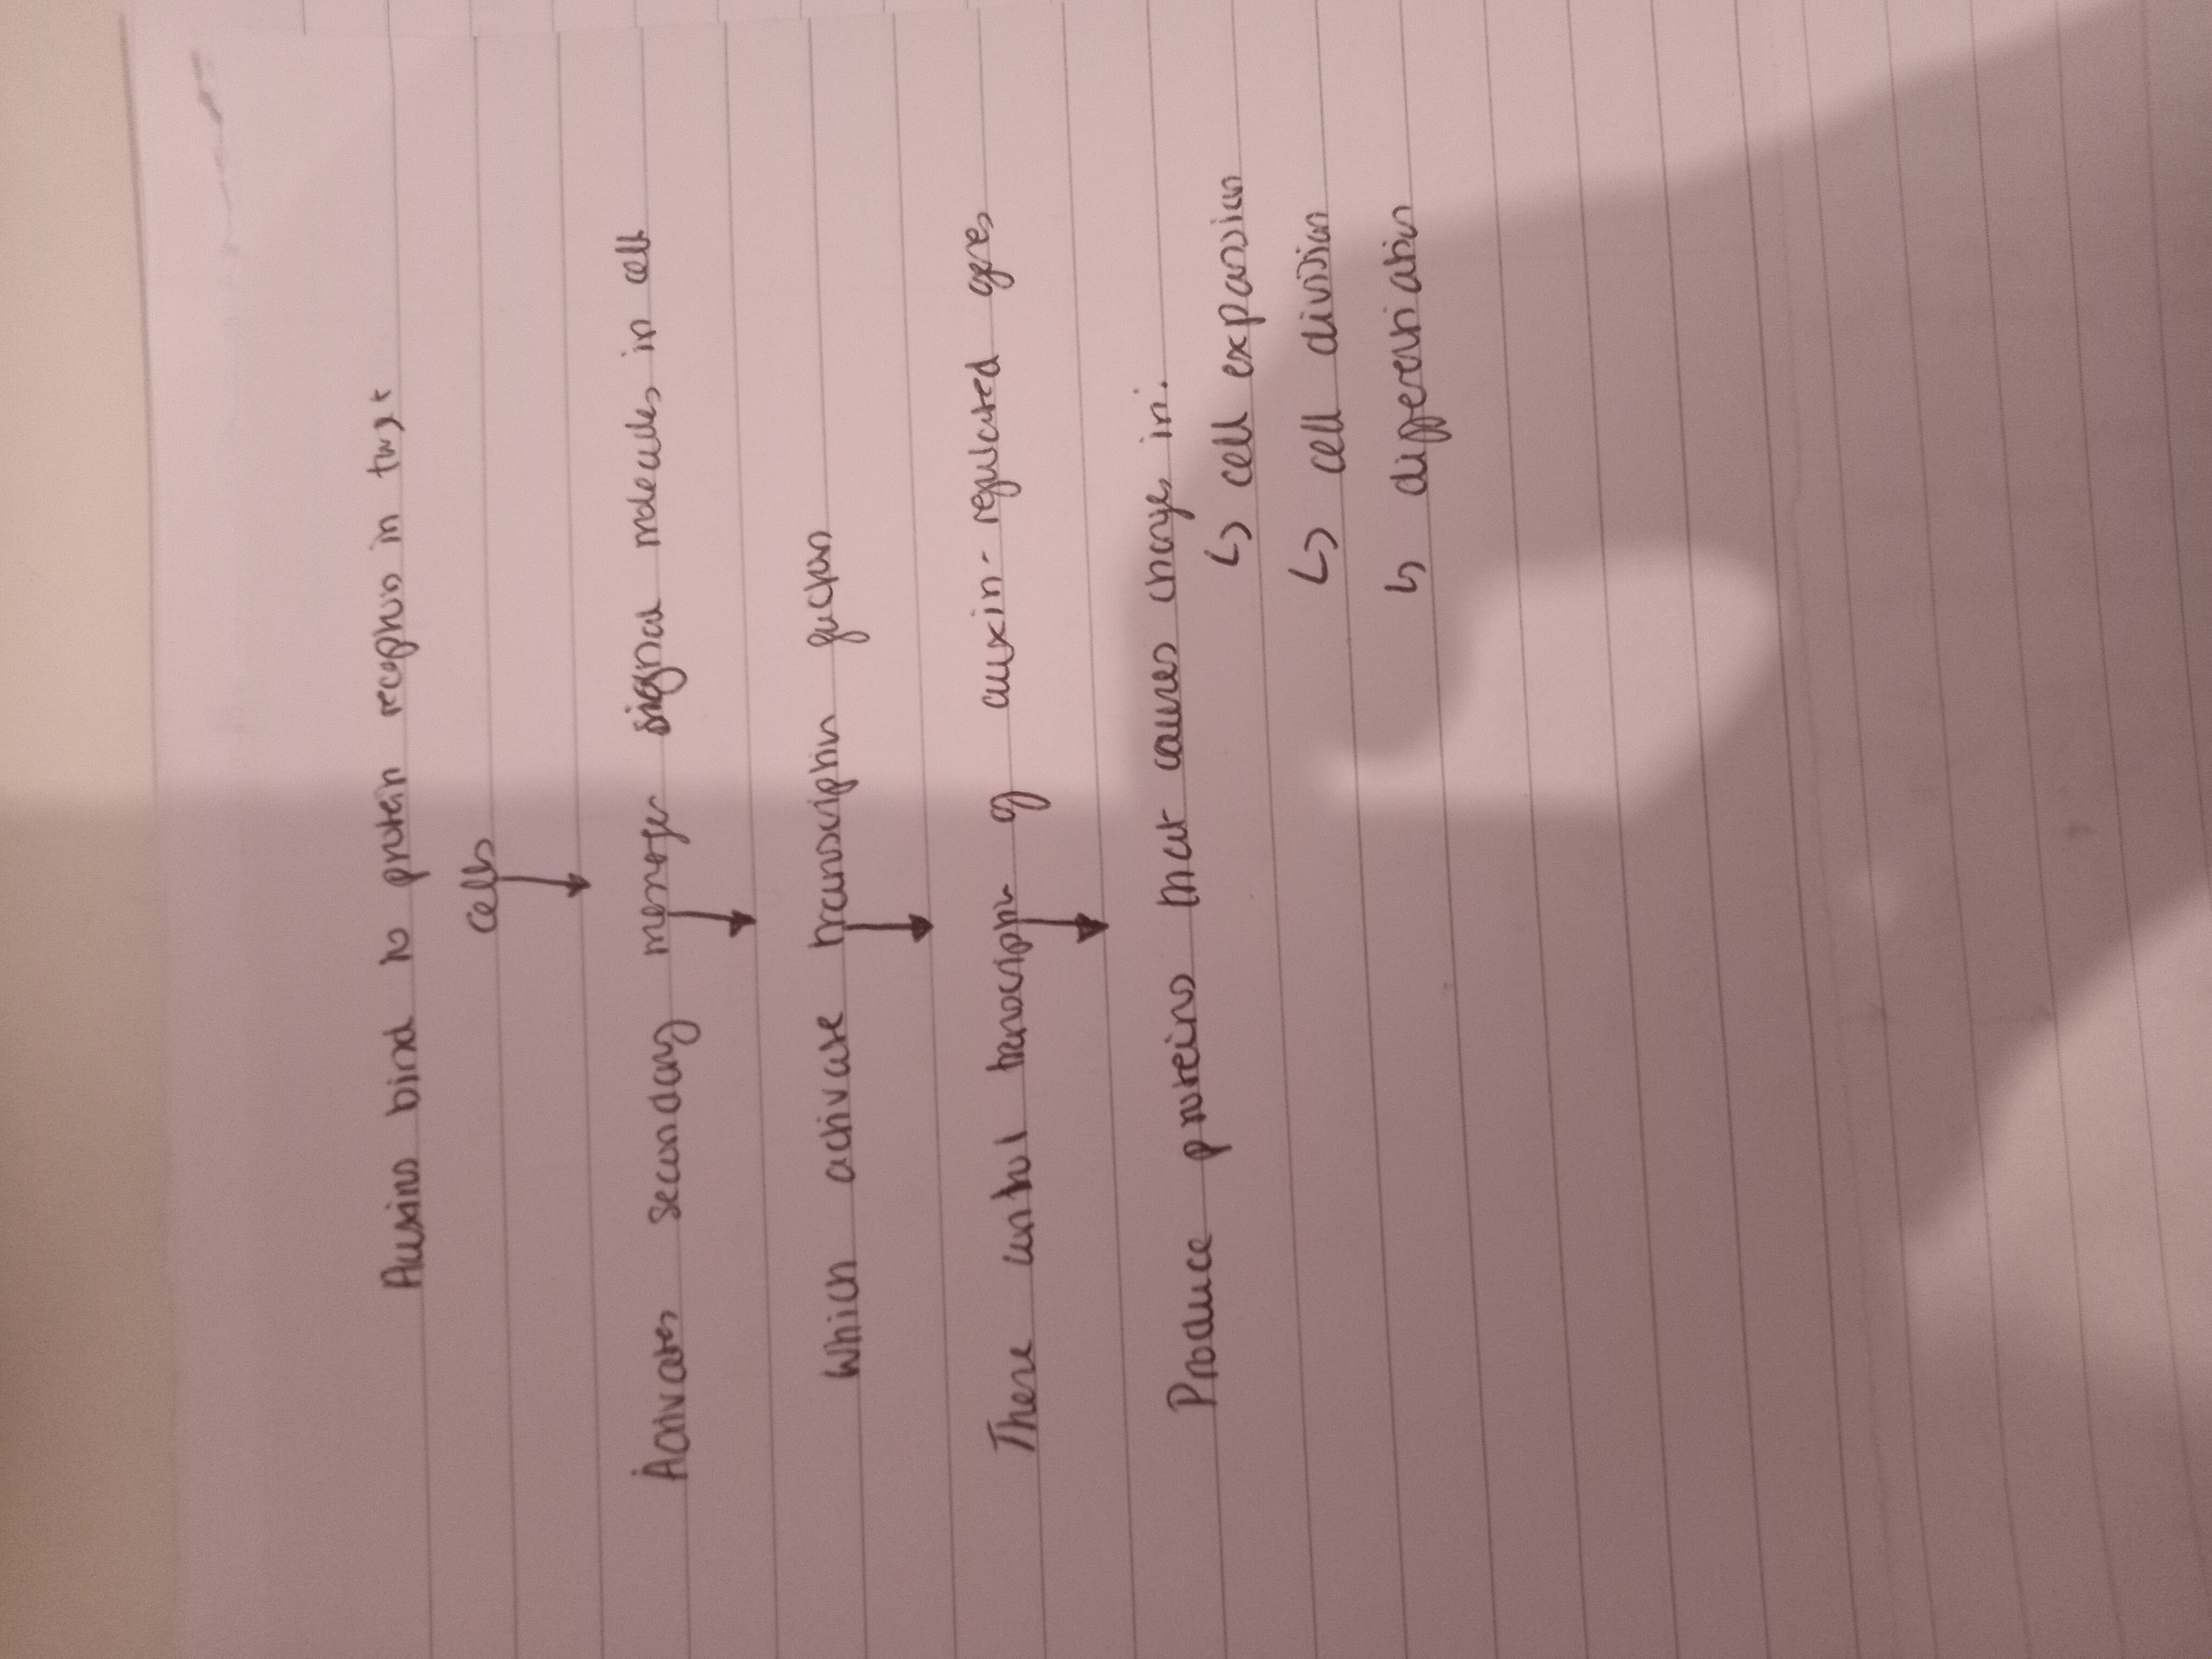 Auxins bind to protein receptors in target
cells
Activates secondary messenger signal molecules in cell
Which activate transcription factors
These control transcription of auxin-regulated genes
Produce proteins that causes changes in:
↳ cell expansion
↳ cell division
↳ differentiation